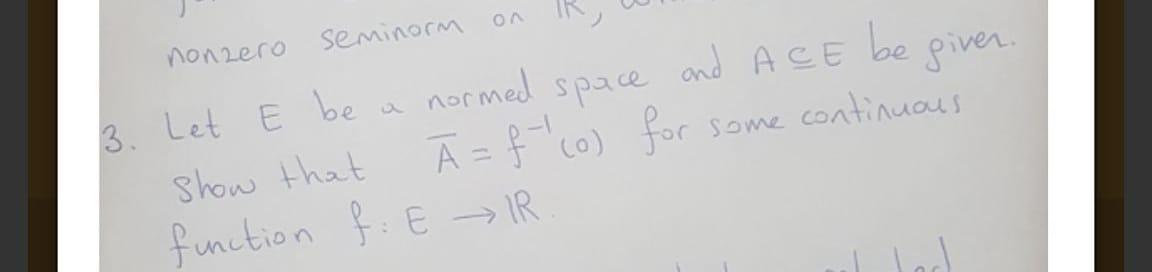 nonzero seminorm on IR,
3. Let E be a normed space and A ⊆ E be given.
Show that Ā = f⁻¹(0) for some continuous
function f: E → IR.